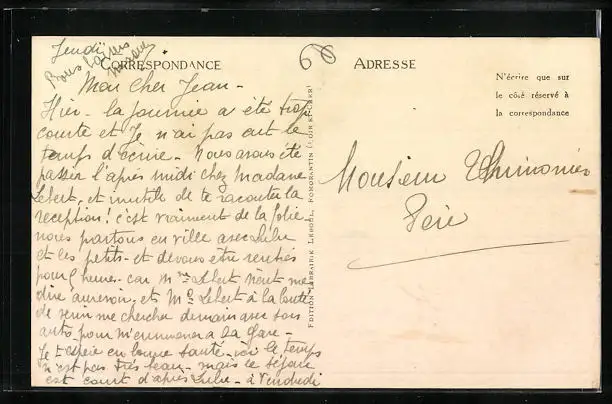 Jeudi
Bons baisers
66
CORRESPONDANCE
Mon cher Jean -
Hier - la journée a été trop
courte et Je n'ai pas eut le
temps d'écrire - Nous avons été
passer l'après midi chez Madame
Lebert, et inutile de te raconter la
réception! c'est vraiment de la folie
nous partons en ville avec Lulu
et les petits - et devons être rentrés
pour 5 heure - car Mme Lebert vient me
dire aurevoir, et Mr Lebert à la bonté
de venir me chercher demain avec son
auto - pour m'emmener à la gare -
Je t'espère en bonne santé - ici le temps
n'est pas très beau - mais le séjour
est court d'après Lulu - à Vendredi
EDITION LIBRAIRIE LEROUL, ROMORANTIN (LOIR-ET-CHER)
ADRESSE
N'écrire que sur
le côté réservé à
la correspondance
Monsieur Thimonier
Père